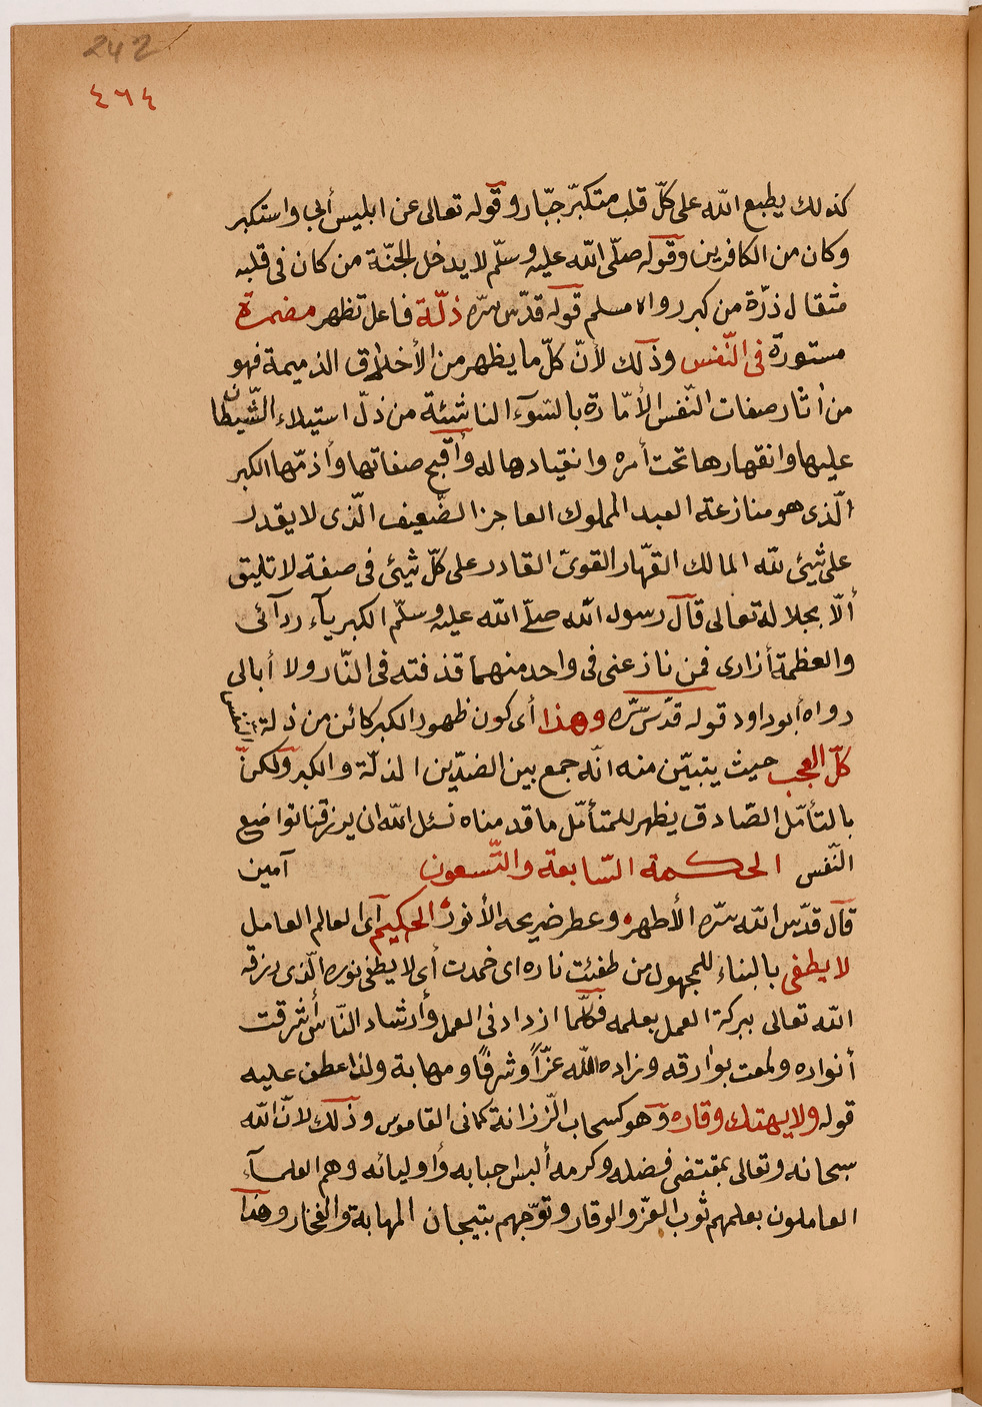 242
٤٦٤
كذلك يطبع الله على كلّ قلب متكبّر جبّار وقوله تعالى عن ابليس أبى واستكبر
وكان من الكافرين وقوله صلّى الله عليه وسلّم لا يدخل الجنّة من كان فى قلبه
مثقال ذرّة من كبر رواه مسلم قوله قدّس سرّه ذلّة فاعل تظهر مضمرة
مستورة فى النّفس وذلك لأنّ كلّ ما يظهر من الأخلاق الذميمة فهو
من اثار صفات النّفس الأمّارة بالسّوء الناشئة من ذلّ استيلاء الشّيطان
عليها وانقهارها تحت أمره وانقيادها له وأقبح صفاتها وأذمّها الكبر
الّذى هو منازعة العبد المملوك العاجز الضّعيف الّذى لا يقدر
على شيئ لله المالك القهّار القوىّ القادر على كلّ شيئ فى صفة لا تليق
ألّا بجلاله تعالى قال رسول الله صلّى الله عليه وسلّم الكبرياء ردآئى
والعظمة أزارى فمن نازعنى فى واحد منهما قذفته فى النّار ولا أبالى
رواه أبو داود قوله قدّس سرّه وهذا أى كون ظهور الكبر كائن من ذلة النفس
كلّ العجب حيث يتبيّن منه انّه جمع بين الضدّين الذلّة والكبر ولكنّ
بالتأمّل الصّادق يظهر للمتأمّل ما قدمناه نسئل الله ان يرزقنا تواضع
النّفس الحكمة السّابعة والتّسعون آمين
قال قدّس الله سرّه الأطهر وعطر ضريحه الأنور الحكيم أى العالم العامل
لا يطفى بالبناء للمجهول من طفئت ناره اى خمدت أى لا يطفى نوره الّذى رزقه
الله تعالى ببركة العمل بعلمه فكلّما ازداد فى العمل وأرشاد النّاس أشرقت
أنواره ولمعت بوارقه وزاده الله عزّاً وشرفًا ومهابة ولذا عطف عليه
قوله ولا يهتك وقاره وهو كسحاب الرّزانة كما فى القاموس وذلك لانّ الله
سبحانه وتعالى بمقتضى فضله وكرمه ألبس احبابه وأوليائه وهم العلمآء
العاملون بعلمهم ثوب العزّ والوقار وتوّجهم بتيجان المهابة والفخار وهذا